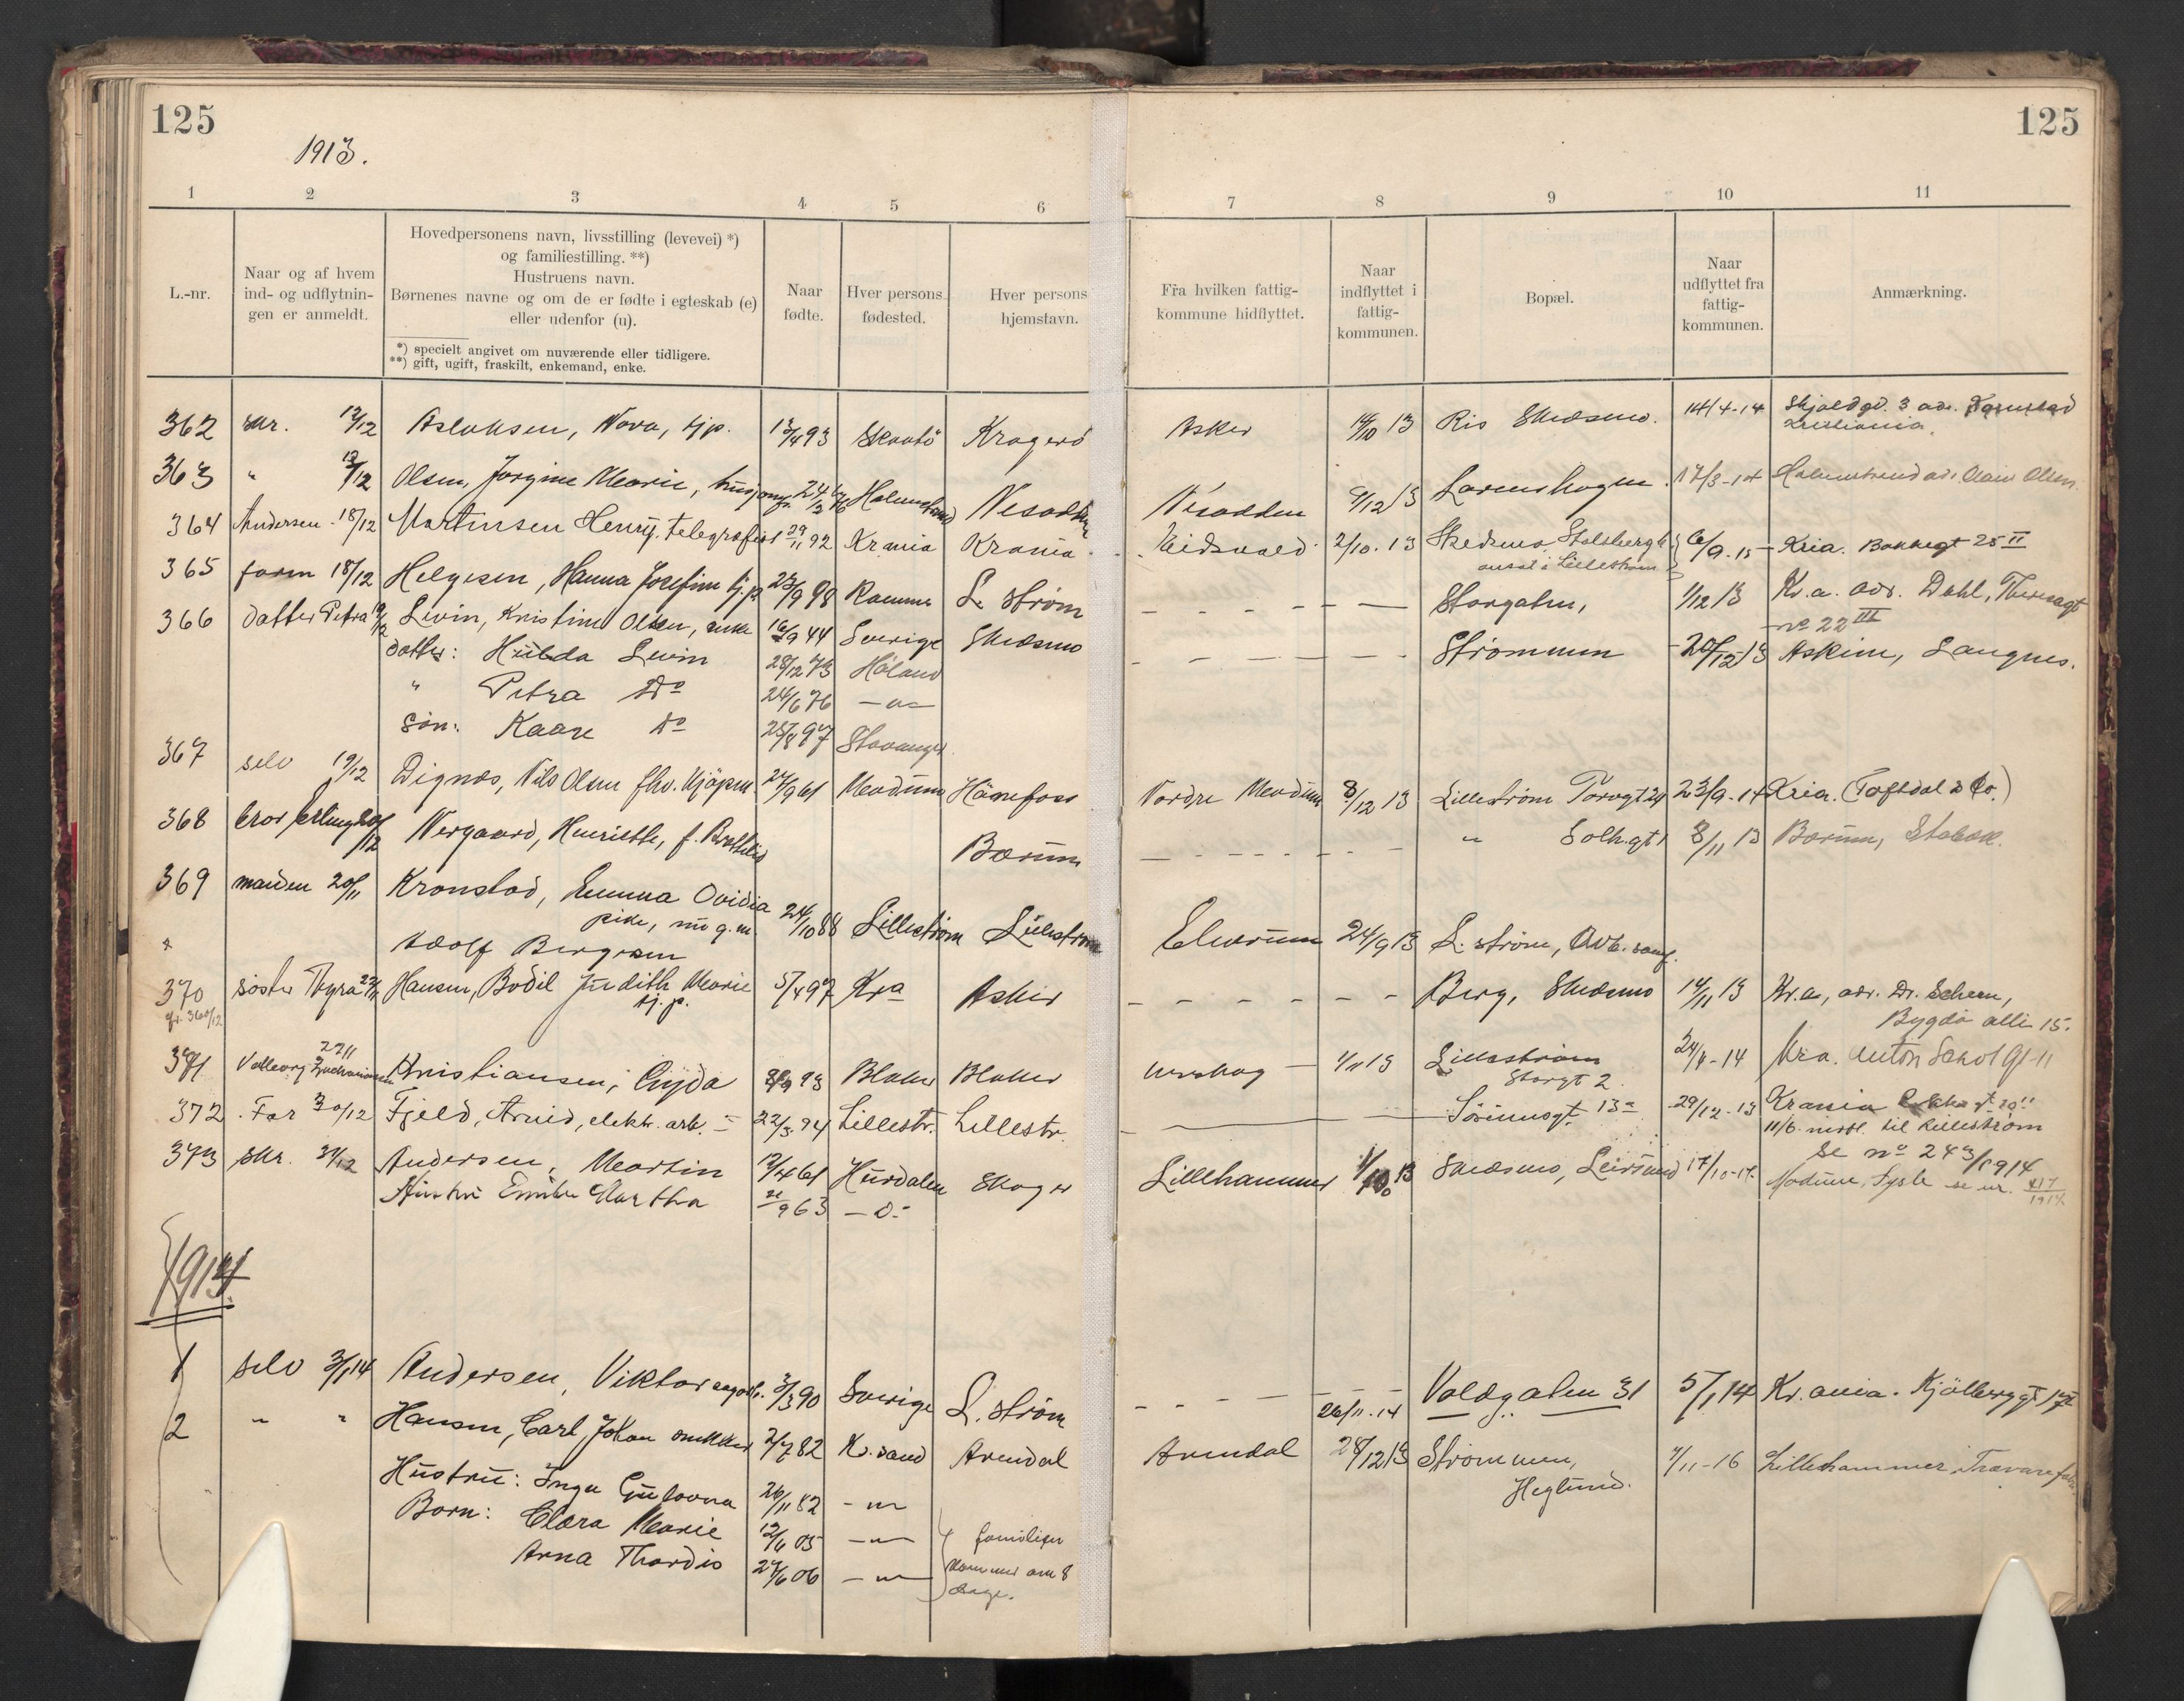 125
125
1913.
1 2 3 4 5 6 7 8 9 10 11
L.-nr.
Naar og af hvem
ind- og udflytnin-
gen er anmeldt.
Hovedpersonens navn, livsstilling (levevei) *)
og familiestilling. **)
Hustruens navn.
Børnenes navne og om de er fødte i egteskab (e)
eller udenfor (u).
*) specielt angivet om nuværende eller tidligere.
**) gift, ugift, fraskilt, enkemand, enke.
Naar
fødte.
Hver persons
fødested.
Hver persons
hjemstavn.
Fra hvilken fattig-
kommune hidflyttet.
Naar
indflyttet i
fattig-
kommunen.
Bopæl.
Naar
udflyttet fra
fattig-
kommunen.
Anmærkning.
362 skr. 12/12 Aslaksen, Nora, tjp. 13/4 93 Skaatö Kragerö Asker 14/10 13 Ris Skedsmo. 14/4-14 Skjoldgd. 3 adr.
Kristiania.
363 " 12/12 Olsen, Jørgine Marie, 24/2 76 Holmestrand Nesodden Nesodden 9/12 13 Larenshagen 17/3-14 Holmestrand adr. Olsen.
364 Andersen 18/12 Martinsen Henry. telegrafist 29/11 92 Krania Krania Eidsvold 2/10. 13 Skedsmo, Stalsberg
ansat i Lilleström 6/9-15 Kria. Bakkegt 25 II
365 farm 18/12 Helgesen, Hanna Josefine tj.p. 23/9 98 L. ström Storgaten, 1/12 13 Kr.a. adr. Dahl, Theresegt
no 22 III
366 datter Petra 19/12 Levin, Kristine Olsen, enke 16/9 44 Sverige Skedsmo Strømmen 20/12 13 Askim, Langnes.
datter: Hulda Levin 28/12 73 Höland
" Petra Do 24/6 76 - " -
Søn: Kaare Do 25/8 97 Stavanger
367 selv 19/12 Dignæs, Nils Olsen fhv. kjøpm 27/9 61 Modum Hönefoss Nordre Modum 8/12 13 Lilleström Torvgt 24 23/9-14 Kria. (Toftdal & Co.)
368 bror Erling 20/12 Nergaard, Henriette, f. Bærum " Solh.gt 1 8/11 13 Bærum, Stabæk.
369 manden 20/11 Kronstad, Emma Ovidia
pike, nu g.m.
Adolf Bergersen 24/10 88 Lilleström Lilleström Elverum 24/9 13 L. ström, Arb. samf.
370 søster Thyra Hansen, Bodil Judith Marie
tj.p. 5/4 97 Kra Asker Berg, Skedsmo 14/11 13 Kr.a, adr. Dr. Scheen,
Bygdö alle 15.
371 Valborg Kristiansen, Gyda 93 Blaker Blaker Urskog 1/11 13 Lilleström
Storgt 2. 24/4-14 Kra. Anton Schøl gt 11
372 Far 30/12 Fjeld, Arvid, elektr. arb. 22/3. 94 Lillestr. Lillestr. 13 29/12-13 Krania
11/6. indfl. til Lilleström
se no 243/1914
373 skr. 31/12 Andersen, Martin 12/4 61 Hurdalen Skoger Lillehammer 1/10 13 Skedsmo, Leirsund 17/10-14. Modum, se nr. 417/1914
Hustru Emilie Martha 21/9 63 - D -
1914.
1 selv 3/1 14 Andersen, Viktor 3/3 90 Sverige L. ström Voldgaten 31 5/1 14 Kr.ania. Kjölberggt 17
2 " " Hansen, Carl Johan snekker 2/7 82 Kr.sand Arendal Arendal 26/11-14 28/12 13 Strømmen,
Heglund. 1/11-16 Lillehammer,
Hustru: Inga Gulovna 26/11 82 - " -
Barn: Clara Marie 12/6 05 - " -
Arna Thordis 27/6 06 - " -
familien
kommer om 8
dage.